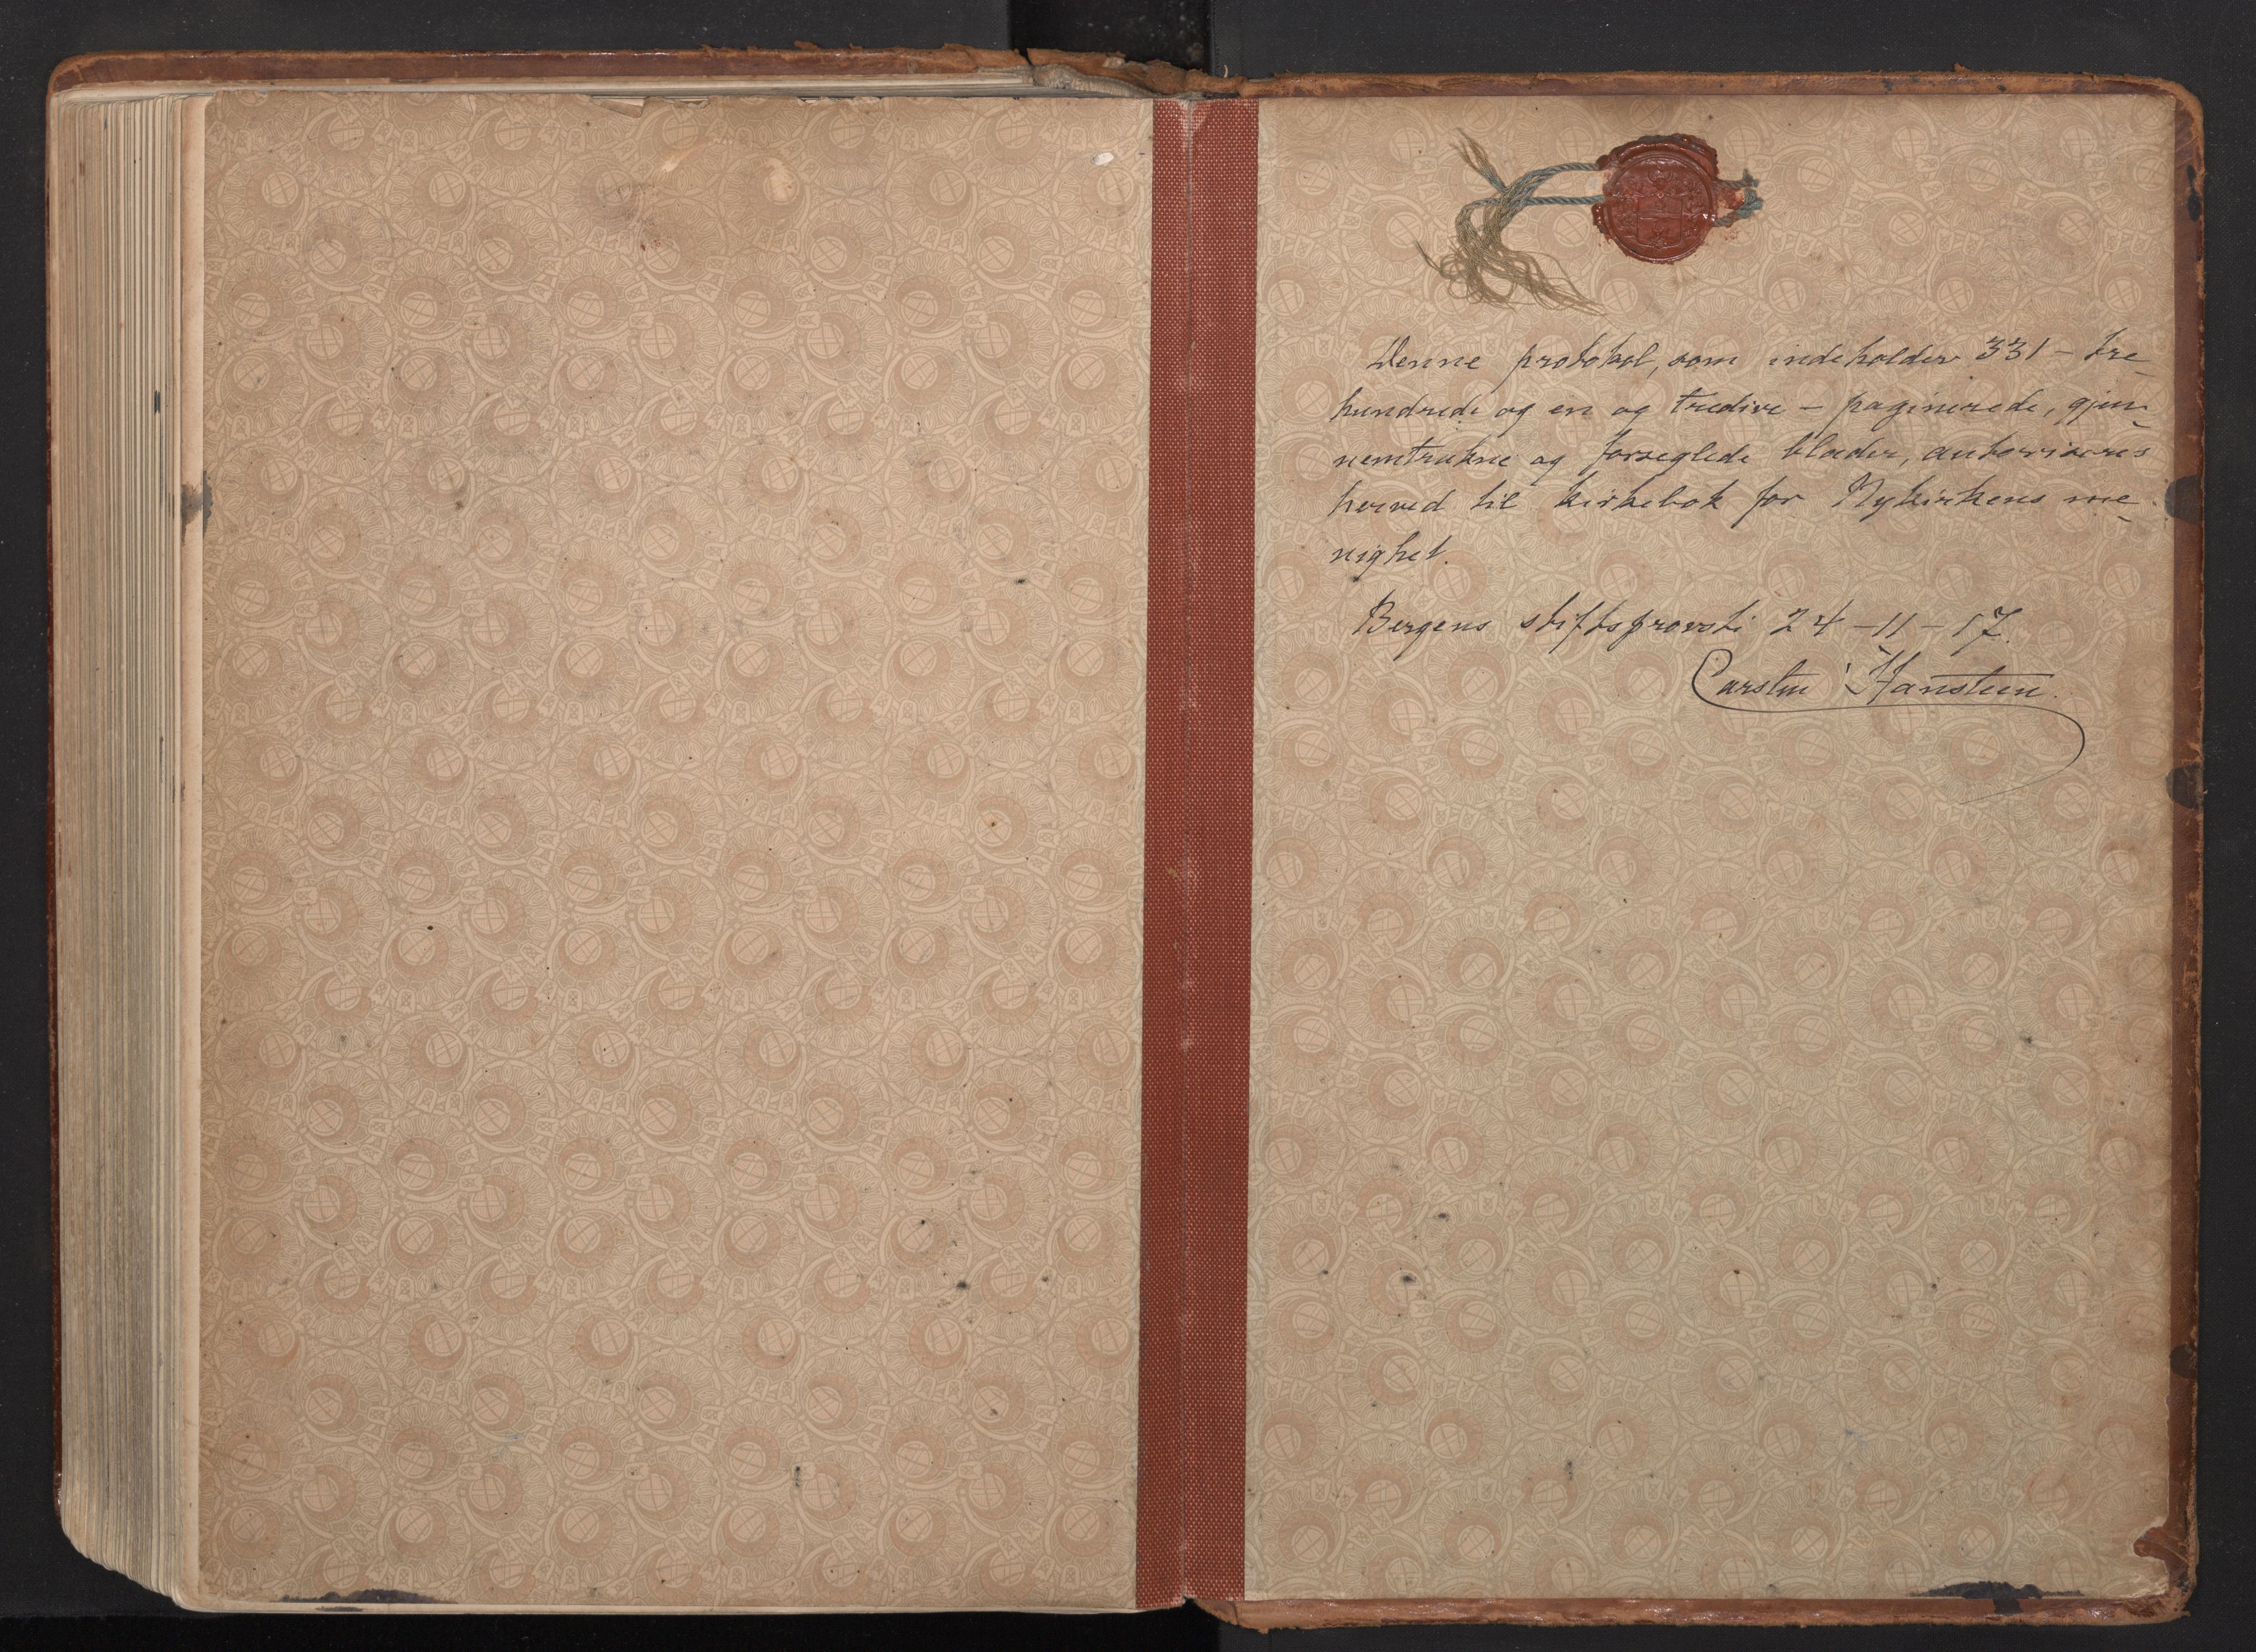 Denne protokol, som indeholder 331 – tre
hundrede og en og tredive – paginerede, gjen-
nemtrukne og forseglede blader, autoriseres
herved til kirkebok for Nykirkens me-
nighet.
Bergens stiftsprovsti 24-11-17.
Carsten Hansteen.